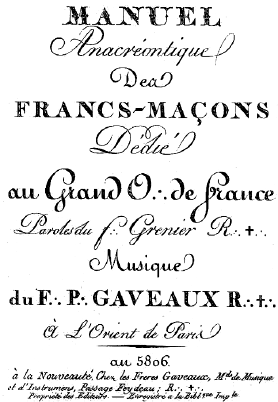 MANUEL
Anacréontique
Des
FRANCS-MAÇONS
Dédié
au Grand O∴ de france
Paroles du f∴ Grenier R∴ ✝∴
Musique
du F∴ P∴ GAVEAUX R∴ ✝∴
À L'Orient de Paris
an 5806.
à la Nouveauté, Chez les Freres Gaveaux, M.ds de Musique
et d'Instrumens, Passage Feydeau; R∴ ✝∴
Propriété des Editeurs — Enregistré a la Bibl.que Imp.le